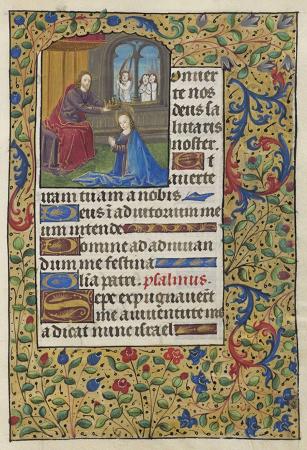 Onuer
te nos
deus sa
lutaris
noster. Et
auerte
iram tuam a nobis
Deus i adiutorium me
um intende
Domine ad adiuuan
dum me festina
Glia patri. psalmus.
Sepe expugnauert
me a iuuentute me
a dicat nunc israel